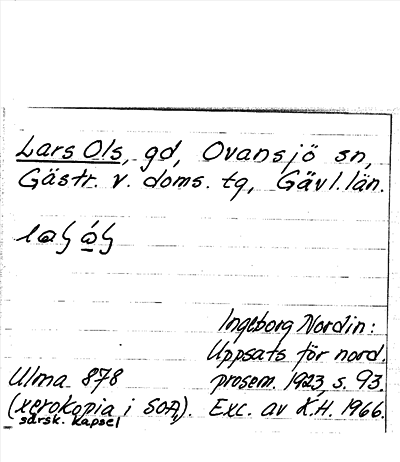 Lars Ols, gd, Ovansjö sn,
Gästr. v. doms. tg, Gävl. län.
Ingeborg Nordin:
Uppsats för nord.
Ulma 878 prosem. 1923, s. 93.
(xerokopia i SOA). Exc. av K.H. 1966.
särsk. kapsel